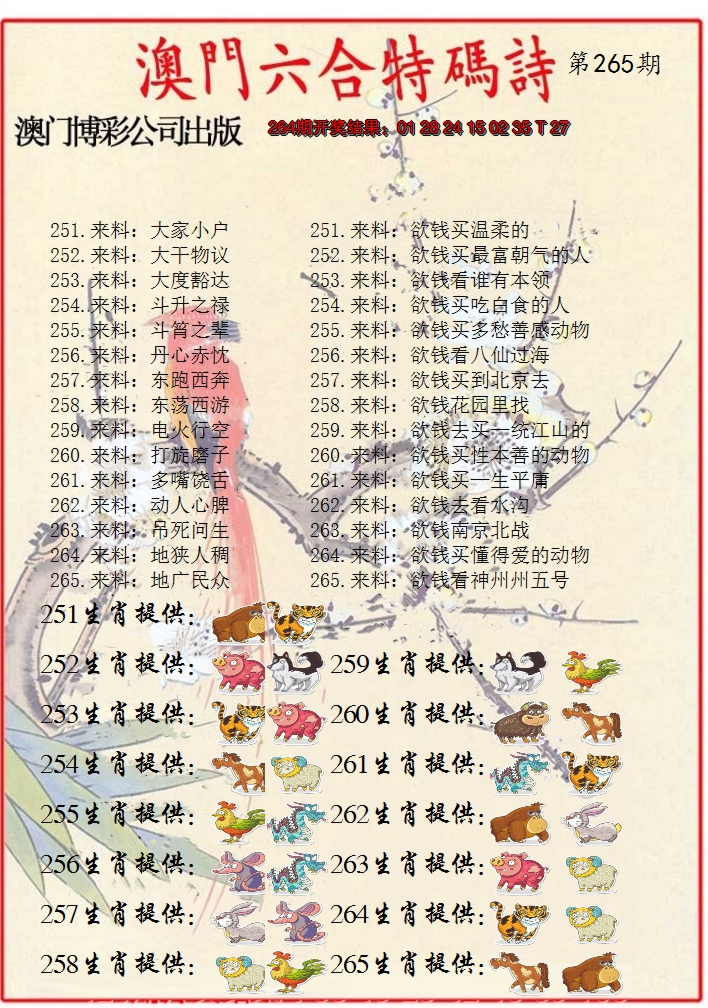 澳門六合特碼詩 第265期
澳门博彩公司出版 264期开奖结果：01 28 24 15 02 35 T 27
251.来料：大家小户 251.来料：欲钱买温柔的
252.来料：大干物议 252.来料：欲钱买最富朝气的人
253.来料：大度豁达 253.来料：欲钱看谁有本领
254.来料：斗升之禄 254.来料：欲钱买吃白食的人
255.来料：斗筲之辈 255.来料：欲钱买多愁善感动物
256.来料：丹心赤忱 256.来料：欲钱看八仙过海
257.来料：东跑西奔 257.来料：欲钱买到北京去
258.来料：东荡西游 258.来料：欲钱花园里找
259.来料：电火行空 259.来料：欲钱去买一统江山的
260.来料：打旋磨子 260.来料：欲钱买性本善的动物
261.来料：多嘴饶舌 261.来料：欲钱买一生平庸
262.来料：动人心脾 262.来料：欲钱去看水沟
263.来料：吊死问生 263.来料：欲钱南京北战
264.来料：地狭人稠 264.来料：欲钱买懂得爱的动物
265.来料：地广民众 265.来料：欲钱看神州州五号
251生肖提供：
252生肖提供： 259生肖提供：
253生肖提供： 260生肖提供：
254生肖提供： 261生肖提供：
255生肖提供： 262生肖提供：
256生肖提供： 263生肖提供：
257生肖提供： 264生肖提供：
258生肖提供： 265生肖提供：